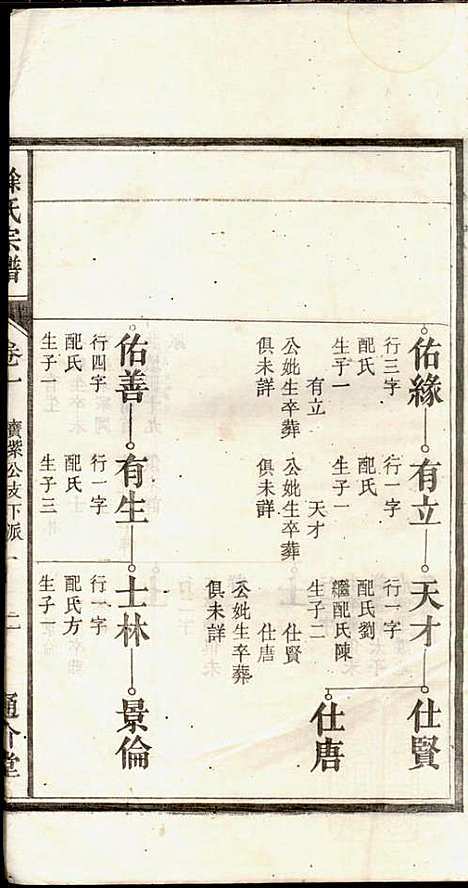 佑緣
行三字
配氏
生子一
有立
公妣生卒葬
俱未詳
有立
行一字
配氏
生子一
天才
公妣生卒葬
俱未詳
天才
行一字
配氏劉
繼配氏陳
生子二
仕賢
仕唐
公妣生卒葬
俱未詳
仕賢
仕唐
佑善
行四字
配氏
生子一
有生
行一字
配氏
生子三
士林
行一字
配氏方
生子一
景倫
徐氏宗譜
卷一
寶紫公支下派一
二
通介堂